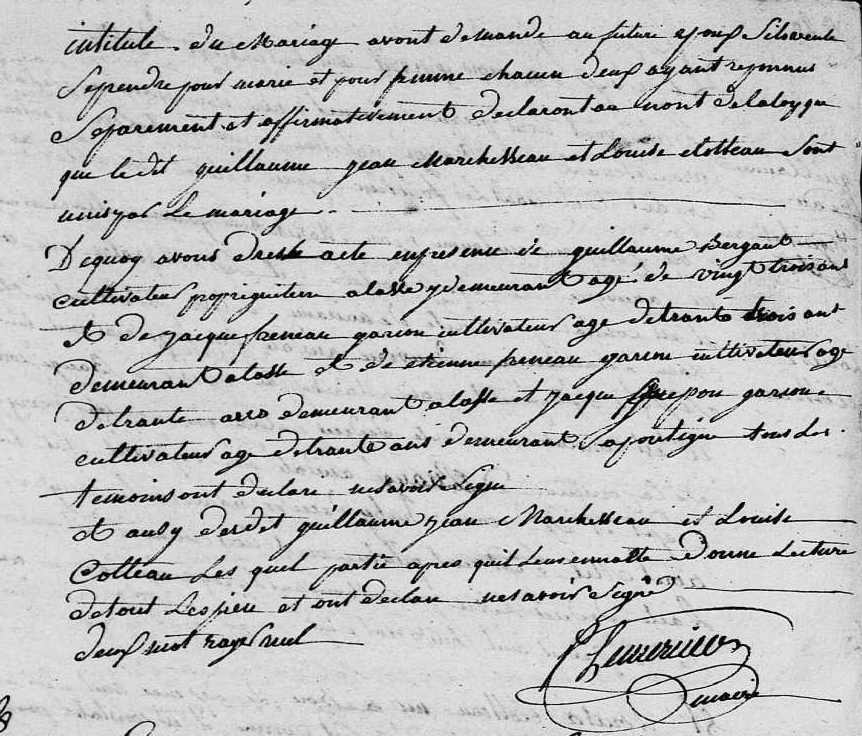 intitule du Mariage avont demande au future epouf Silsveule
Seprendre pour marie et pour femme chacun deux ayant reponnus
Separement et affirmativement declaront au nont delaloy que
que le dit guillaume jean Marchesseau et Louise Cotteau Sont
unis par Le mariage
Dequoy avons dresse acte enpresence de guillaume Bergant
cultivateur propriguitere alasse y demeurant age de vingt trois ans
et de jacque freneau garson cultivateur age detrante trois ant
demeurant alasse et de etienne freneau garson cultivateur age
detrante ans demeurant alasse et jacque garson
cultivateur age detrante ans demeurant apoutigne tous Les
temoins ont declare nesavoir Signe
et ausy derdet guillaume jean Marchesseau et Louise
Cotteau Les quel partie apres quil Leus ennatte donne Lecture
detout Lespiese et ont declare nesavoir Signe
deux mot raye nul
maire